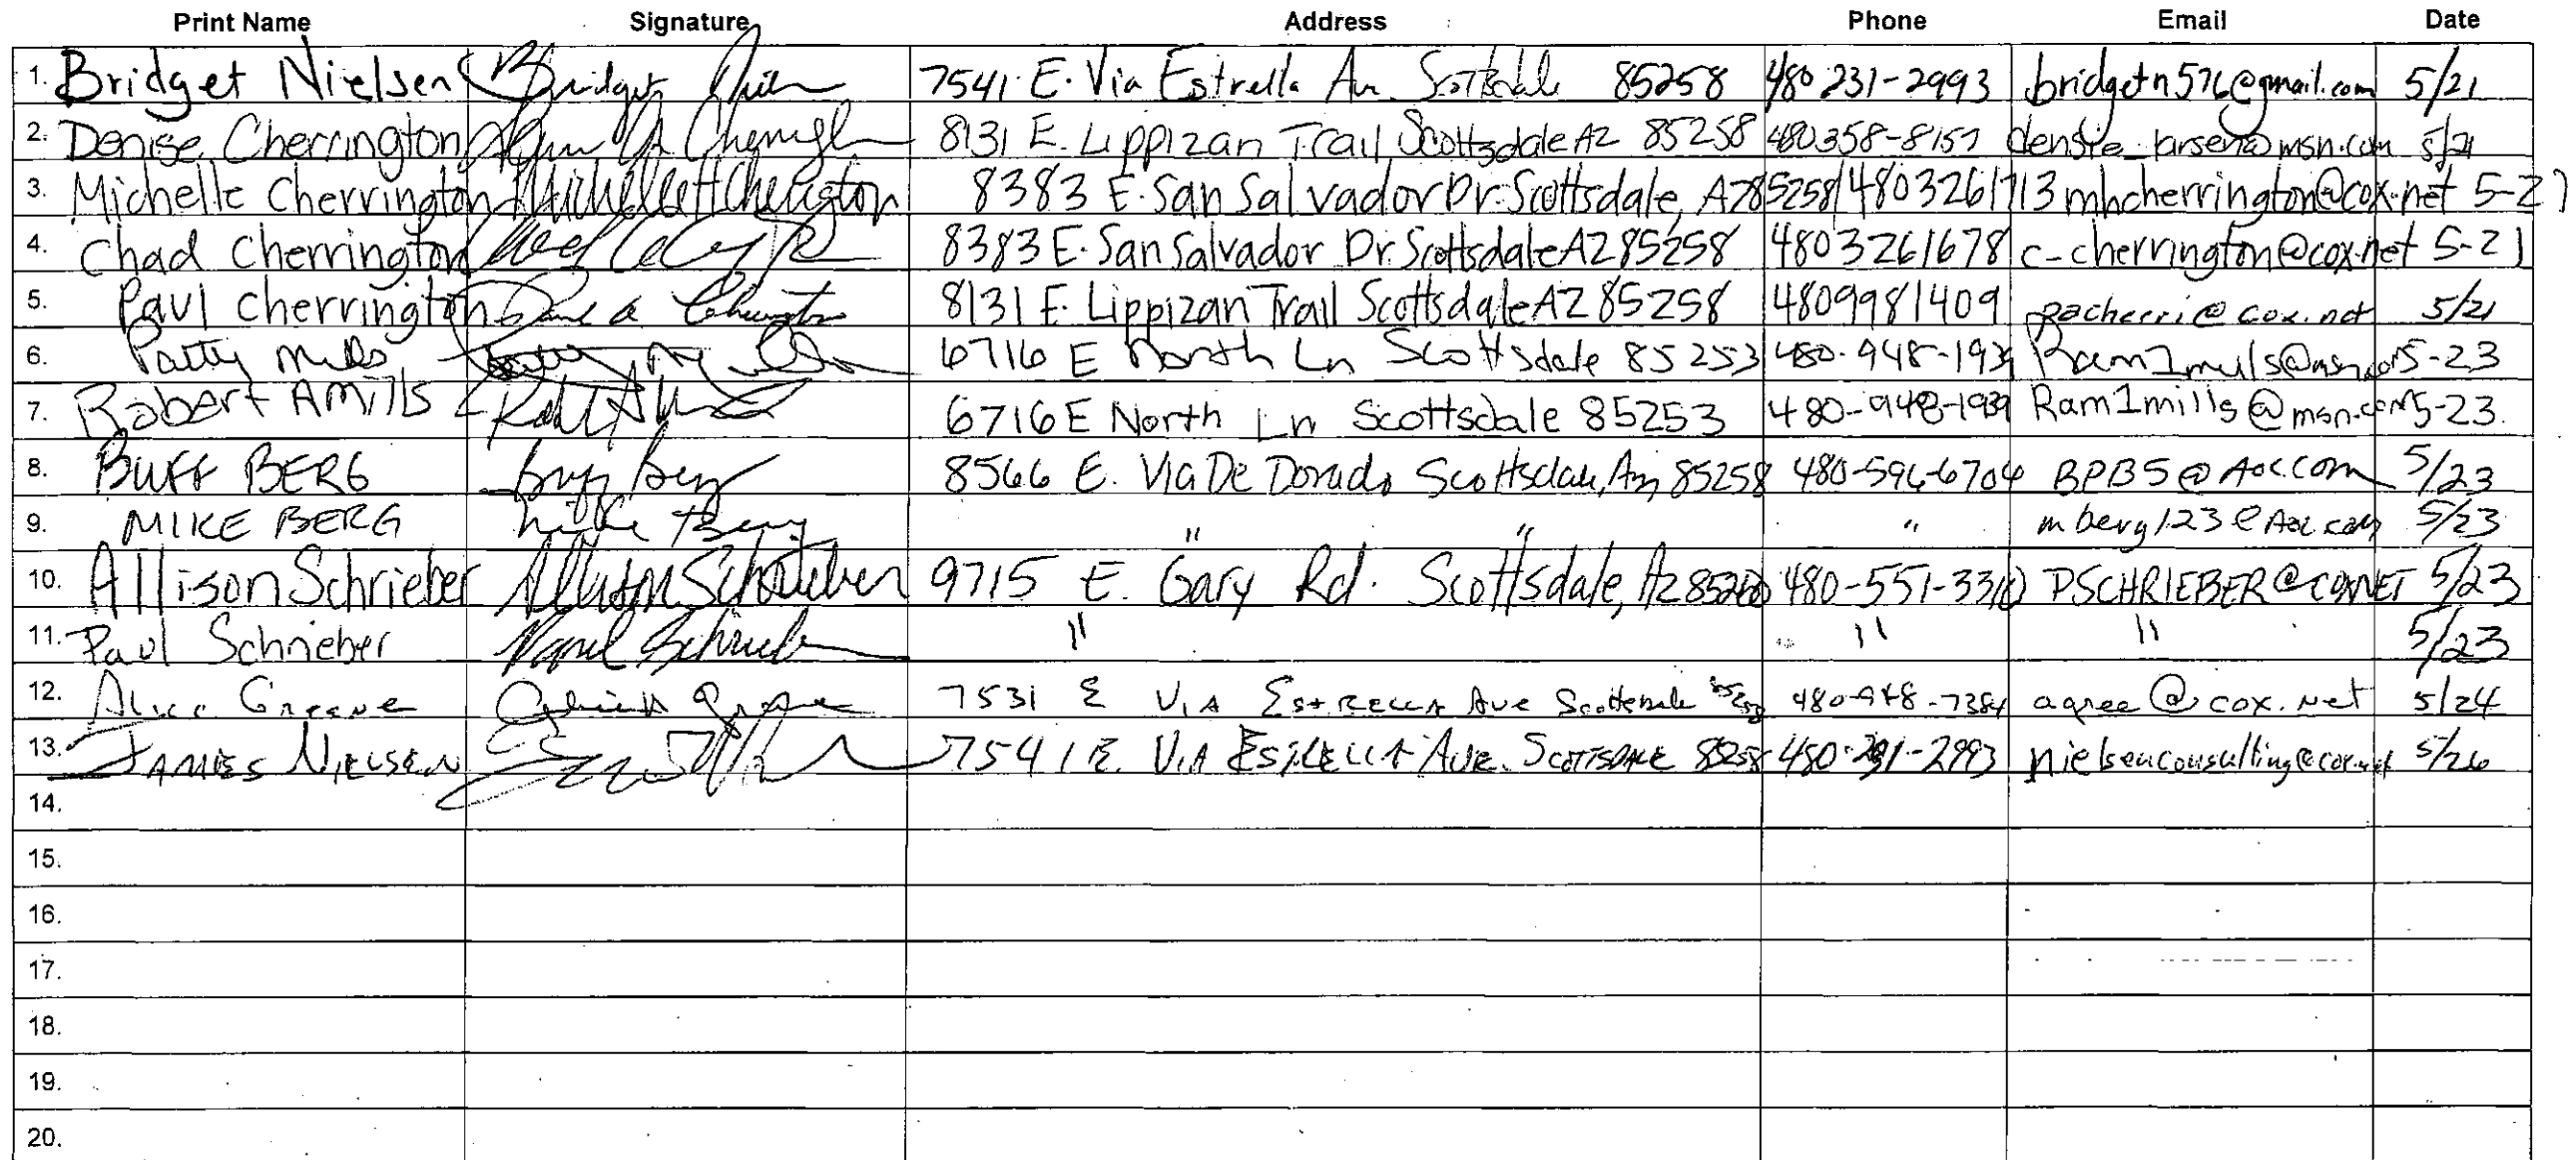 Print Name Signature Address Phone Email Date
1. Bridget Nielsen Bridget 7541 E. Via Estrella Av. Scottsdale 85258 480 231-2993 bridgetn576@gmail.com 5/21
2. Denise Cherrington 8131 E. Lippizan Trail, Scottsdale AZ 85258 480358-8157 5/21
3. Michelle Cherrington Michelle H Cherrington 8383 E. San Salvador Dr. Scottsdale, AZ 85258 4803261713 mhcherrington@cox.net 5-21
4. Chad Cherrington 8383 E. San Salvador Dr. Scottsdale AZ 85258 4803261678 c-cherrington@cox.net 5-21
5. Paul Cherrington Paul a Cherrington 8131 E. Lippizan Trail Scottsdale AZ 85258 4809981409 pacherri@cox.net 5/21
6. Patty Mills 6716 E North Ln Scottsdale 85253 480-948-1939 Ram1mills@msn.com 5-23
7. Robert A Mills 6716 E North Ln Scottsdale 85253 480-948-1939 Ram1mills@msn.com 5-23
8. BUFF BERG Buff Berg 8566 E. Via De Dorado Scottsdale, Az 85258 480-596-6704 BPB5@Aol.com 5/23
9. MIKE BERG Mike Berg " " " mberg123@Aol.com 5/23
10. Allison Schrieber Allison Schrieber 9715 E. Gary Rd. Scottsdale, Az 85260 480-551-3310 PSCHRIEBER@COX.NET 5/23
11. Paul Schrieber Paul Schrieber " " " 5/23
12. Alice Greene 7531 E Via Estrella Ave Scottsdale 85258 480-948-7384 agree@cox.net 5/24
13. JAMES NIELSEN 7541 E. VIA ESTRELLA AVE. SCOTTSDALE 85258 480-291-2993 nielsenconsulting@cox.net 5/26
14.
15.
16.
17.
18.
19.
20.